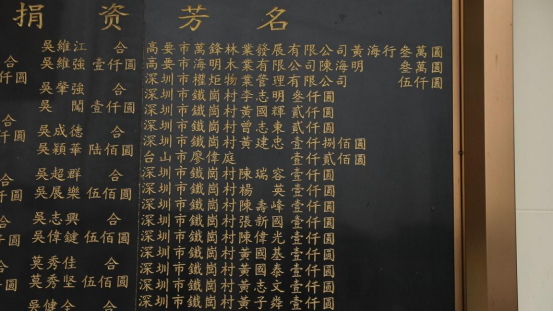 捐資芳名
吳維江 合
吳維強 壹仟圓
吳肇強 合
吳 闖 壹仟圓
吳成德 合
吳穎華 陸佰圓
吳超群 合
吳展樂 伍佰圓
吳志興 合
吳偉鍵 伍佰圓
莫秀佳 合
莫秀坚 伍佰圓
吳健全 合
合
仟圓
合
圓
合
圓
合
圓
高要市萬鋒林業發展有限公司黃海行叁萬圓
高要市海明木業有限公司陳海明 叁萬圓
深圳市權炬物業管理有限公司 伍仟圓
深圳市鐵崗村李志明 叁仟圓
深圳市鐵崗村黃國輝 貳仟圓
深圳市鐵崗村曾志東 貳仟圓
深圳市鐵崗村黃建忠 壹仟捌佰圓
台山市廖偉庭 壹仟貳佰圓
深圳市鐵崗村陳瑞容 壹仟圓
深圳市鐵崗村楊 英 壹仟圓
深圳市鐵崗村陳壽峰 壹仟圓
深圳市鐵崗村張新國 壹仟圓
深圳市鐵崗村陳偉光 壹仟圓
深圳市鐵崗村黃國基 壹仟圓
深圳市鐵崗村黃國泰 壹仟圓
深圳市鐵崗村黃志文 壹仟圓
深圳市鐵崗村黃子舜 壹仟圓